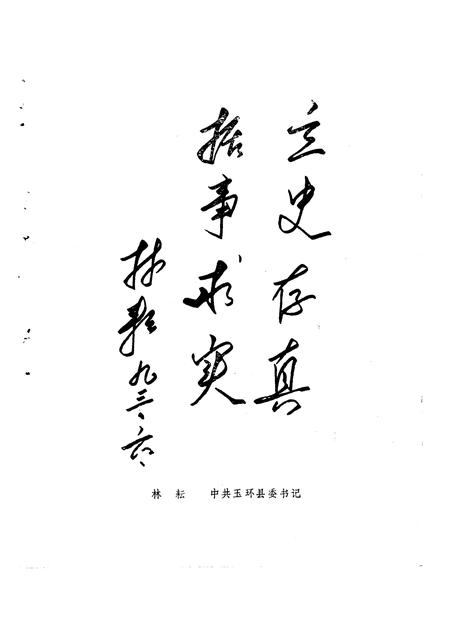 立史存真
括事求实
林耘 九三、六、
林 耘 中共玉环县委书记